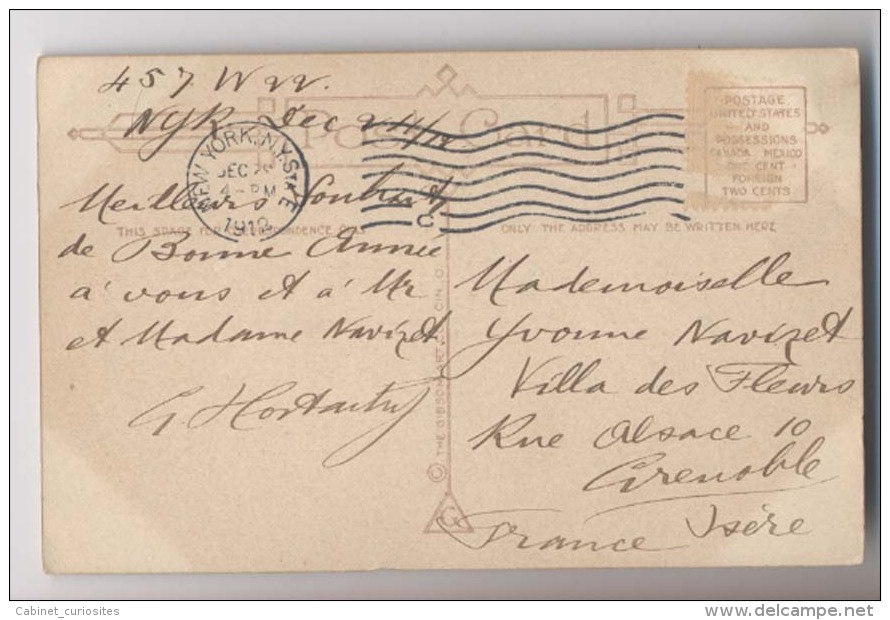 457 W 22.
NYk Dec 24/12
Post Card
NEW YORK, N.Y. STATE
DEC 2
4-PM
1912
C
POSTAGE
UNITED STATES
AND
POSSESSIONS
CANADA MEXICO
ONE CENT
FOREIGN
TWO CENTS
THIS SPACE FOR CORRESPONDENCE
ONLY THE ADDRESS MAY BE WRITTEN HERE
Meilleurs Souhaits
de Bonne Année
a' vous et a' Mr
et Madame Navizet
G
Mademoiselle
Yvonne Navizet
Villa des Fleurs
Rue Alsace 10
Grenoble
Isère
France
© THE GIBSON ART CO., CIN. O.
G
Cabinet_curiosites
www.delcampe.net